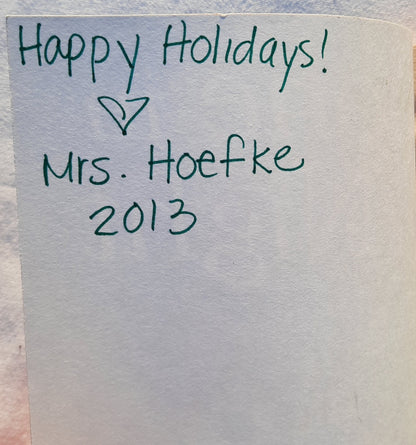 Happy Holidays!
Mrs. Hoefke
2013